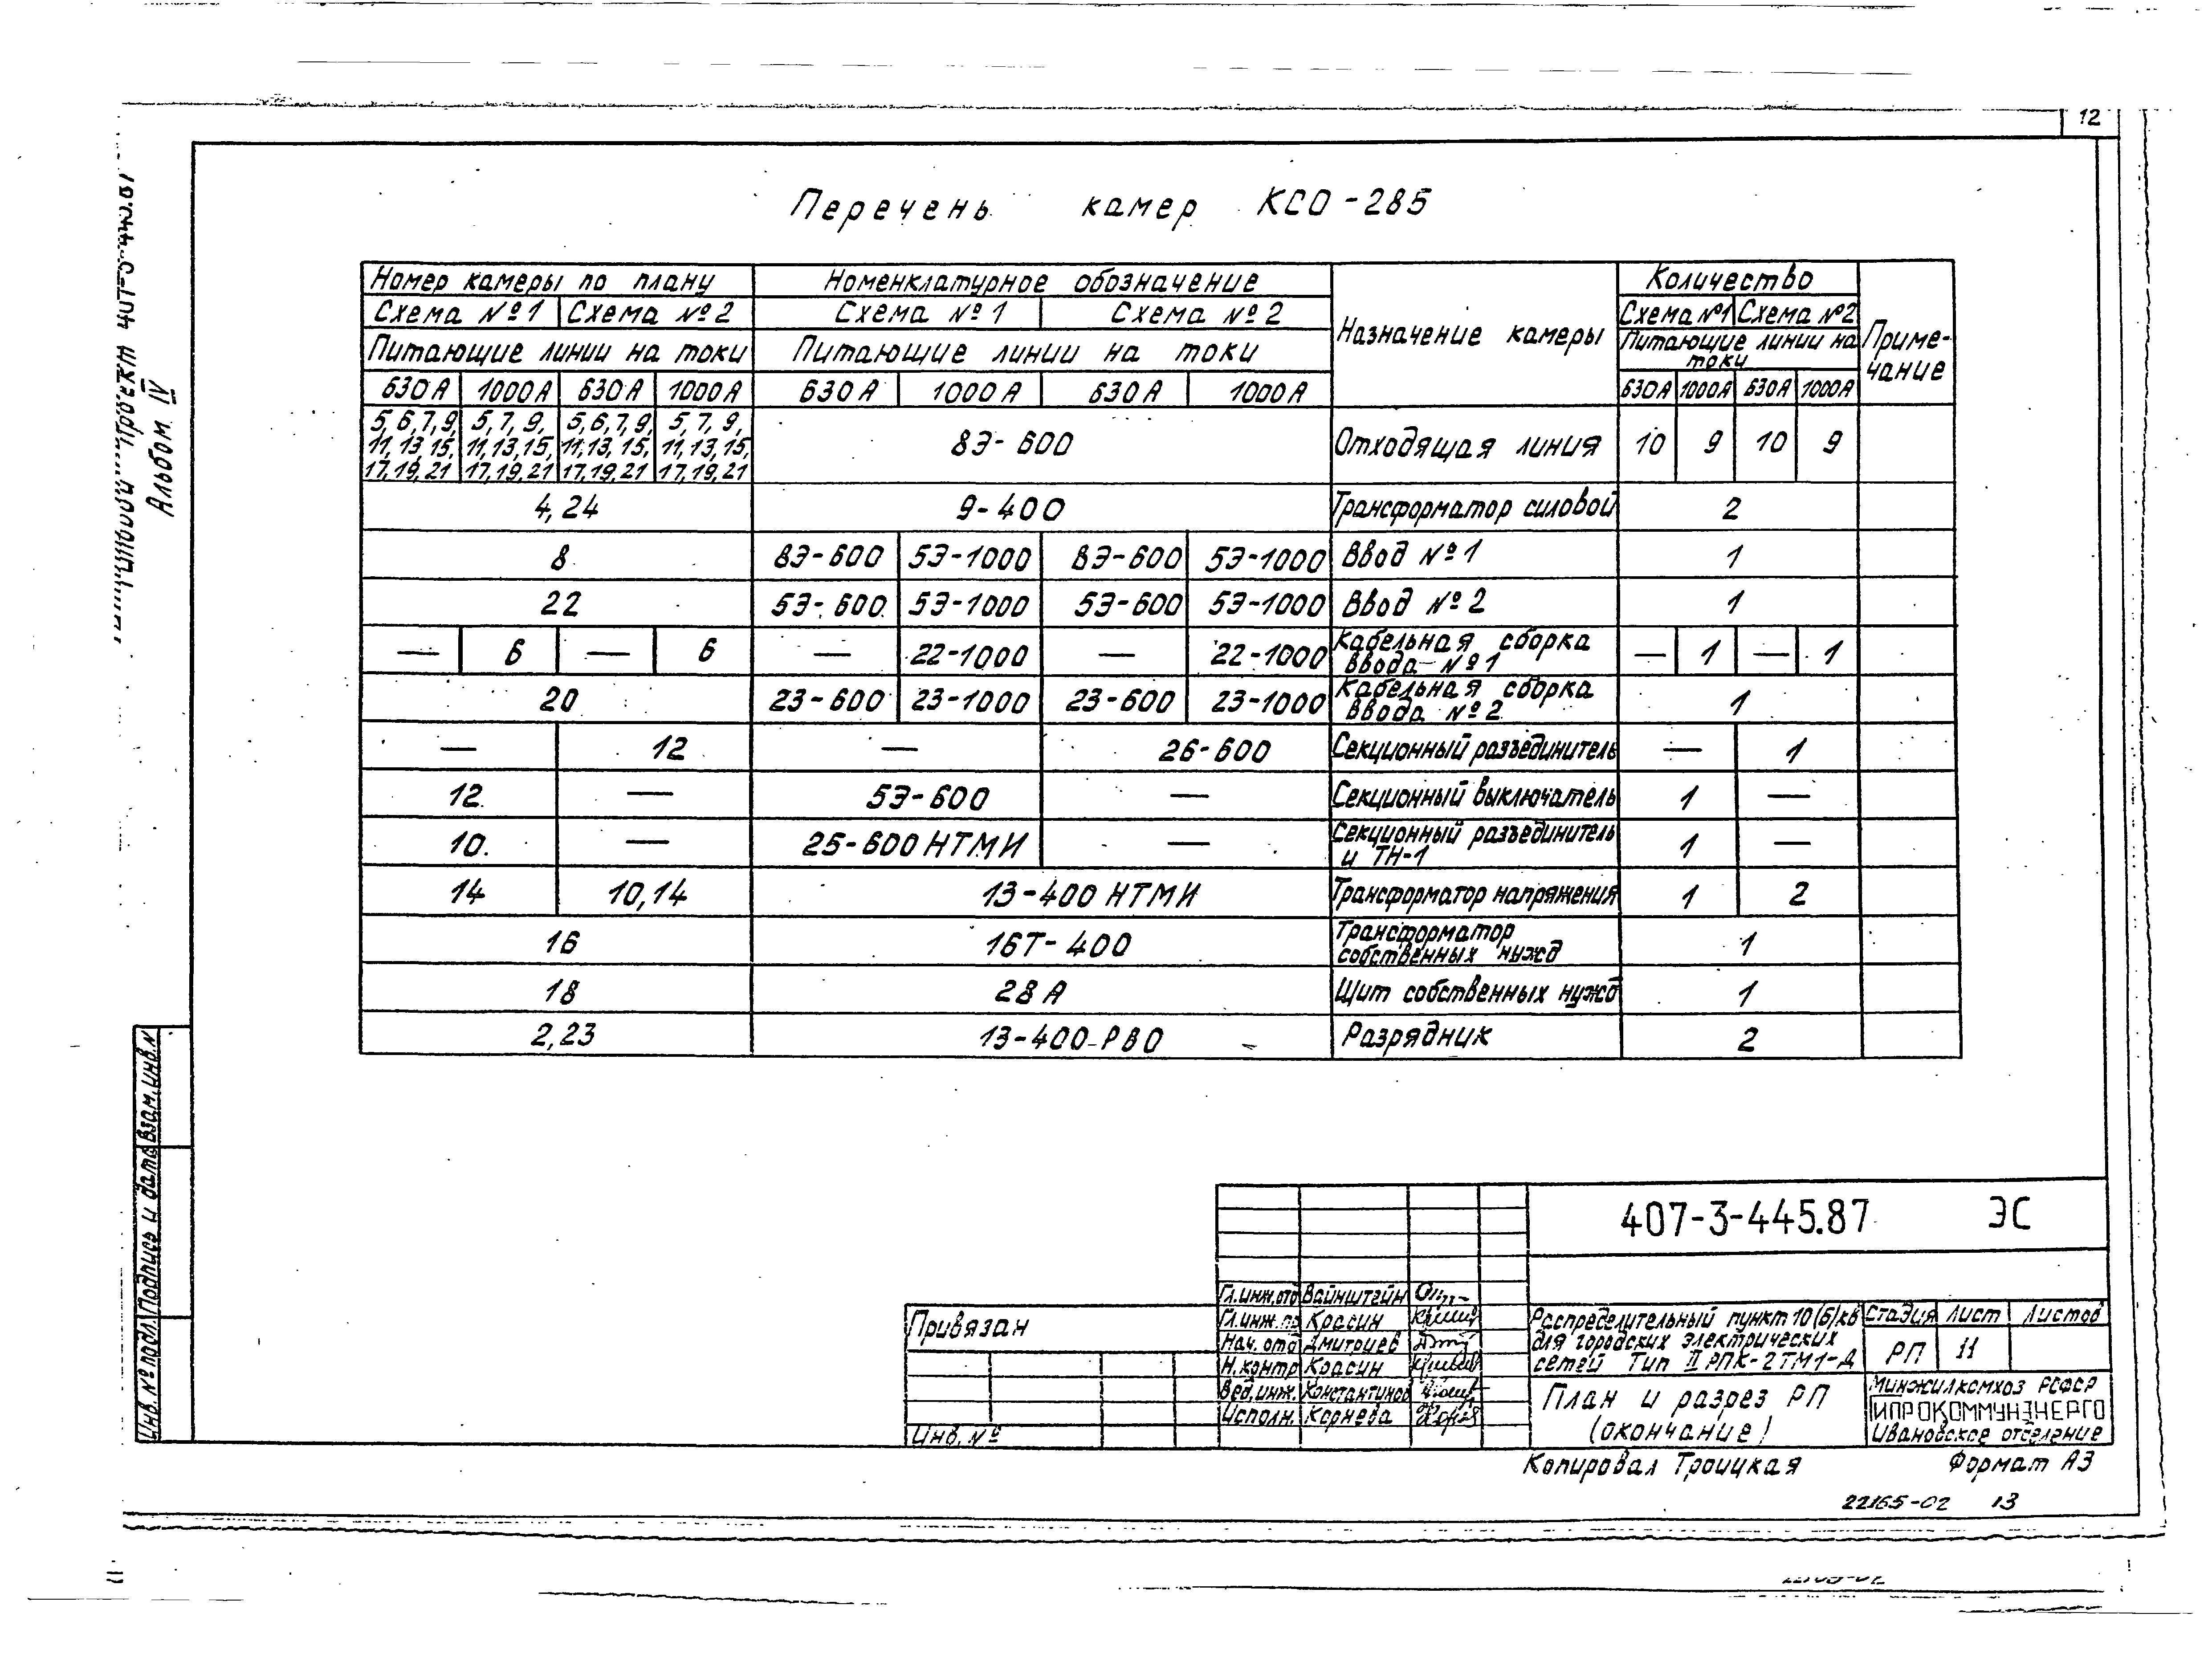 12
Типовой проект 407-3-445.87
Альбом IV
Перечень камер КСО-285
Номер камеры по плану
Номенклатурное обозначение
Назначение камеры
Количество
Примечание
Схема №1 Схема №2
Схема №1 Схема №2
Схема №1 Схема №2
Питающие линии на токи
Питающие линии на токи
Питающие линии на токи
630А 1000А 630А 1000А 630А 1000А 630А 1000А 630А 1000А 630А 1000А
5,6,7,9, 5,7,9, 5,6,7,9, 5,7,9,
11,13,15, 11,13,15, 11,13,15, 11,13,15,
17,19,21 17,19,21 17,19,21 17,19,21
8Э-600 Отходящая линия 10 9 10 9
4,24 9-400 Трансформатор силовой 2
8 8Э-600 5Э-1000 8Э-600 5Э-1000 Ввод №1 1
22 5Э-600 5Э-1000 5Э-600 5Э-1000 Ввод №2 1
— 6 — 6 — 22-1000 — 22-1000 Кабельная сборка ввода №1 — 1 — 1
20 23-600 23-1000 23-600 23-1000 Кабельная сборка ввода №2 1
— 12 — 26-600 Секционный разъединитель — 1
12 — 5Э-600 — Секционный выключатель 1 —
10. — 25-600 НТМИ — Секционный разъединитель и ТН-1 1 —
14 10,14 13-400 НТМИ Трансформатор напряжения 1 2
16 16Т-400 Трансформатор собственных нужд 1
18 28А Щит собственных нужд 1
2,23 13-400-РВО Разрядник 2
Инв. № подл. Подпись и дата Взам. инв. №
407-3-445.87 ЭС
Гл.инж.отд Вайнштейн
Гл.инж.пр Красин
Нач. отд Дмитриев
Н.контр Красин
Вед.инж. Константинов
Исполн. Корнева
Привязан
Инв. №
Распределительный пункт 10(6)кв
для городских электрических
сетей Тип II РПК-2ТМ1-Д
Стадия Лист Листов
РП 11
План и разрез РП
(окончание)
Минжилкомхоз РСФСР
ГИПРОКОММУНЭНЕРГО
Ивановское отделение
Копировал Троицкая Формат А3
22165-02 13